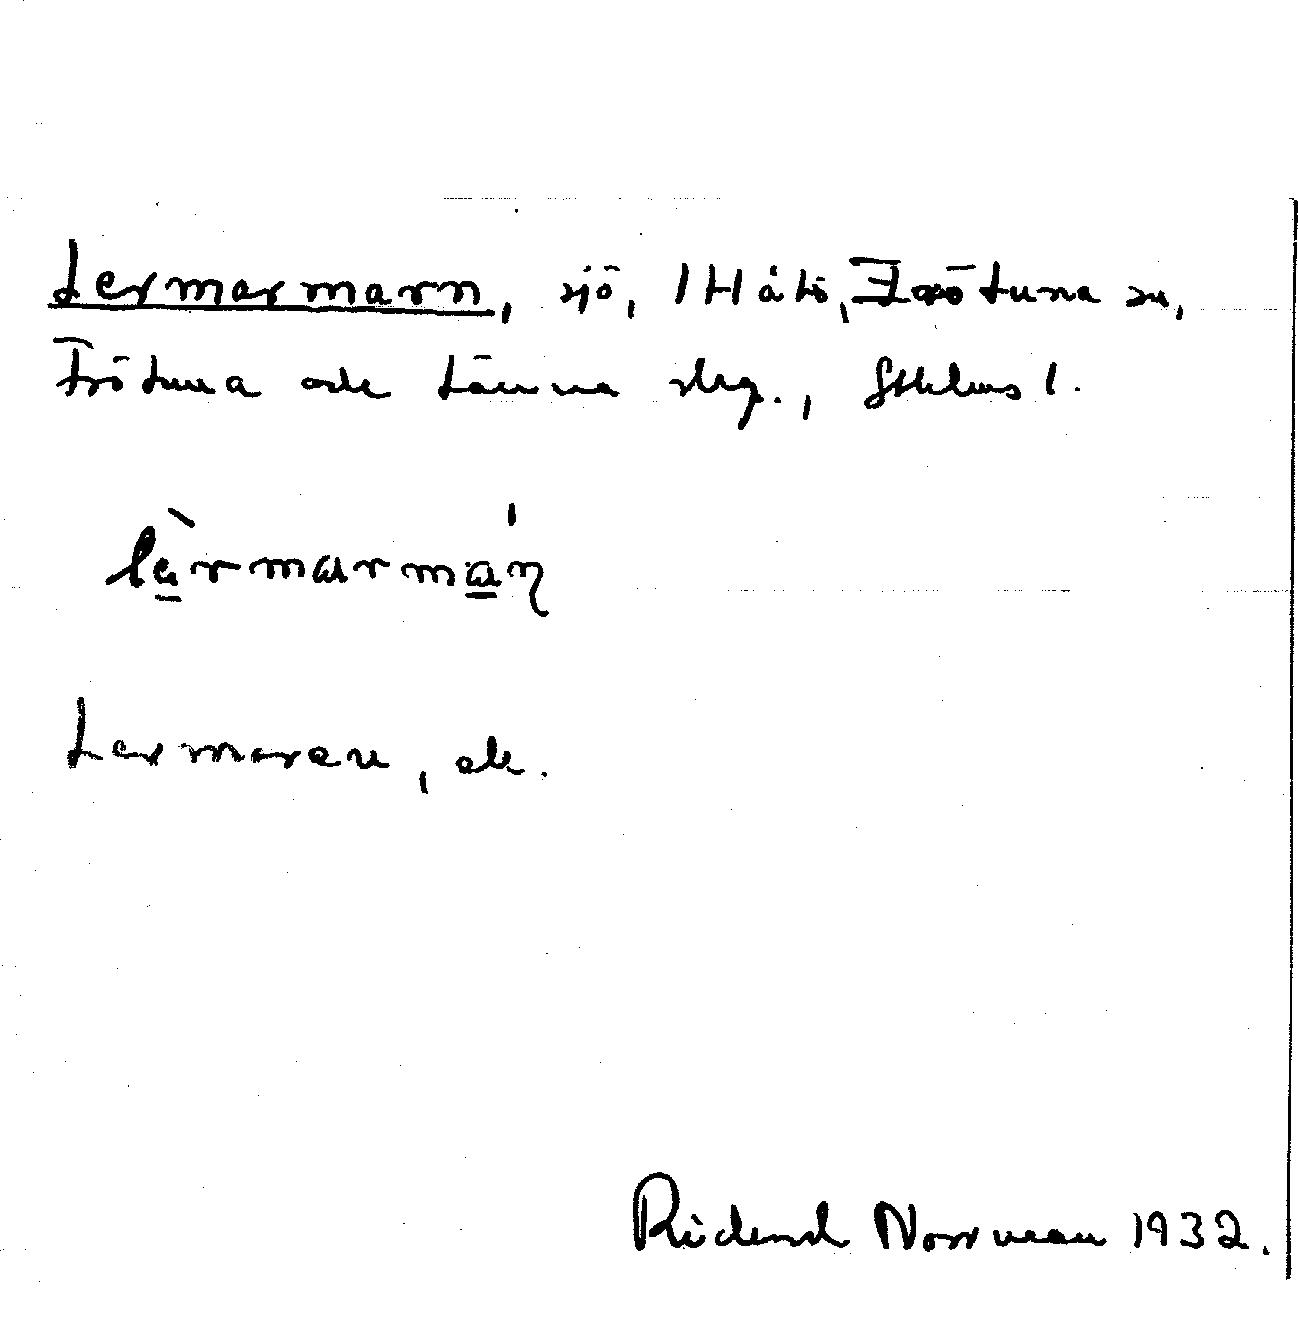 Lermarmarn, sjö, 1 Håtö, Frötuna sn,
Frötuna och Länna skg., Sthlms l.
lèrmarmáɳ
Lermaren, ek.
Rickard Norrman 1932.